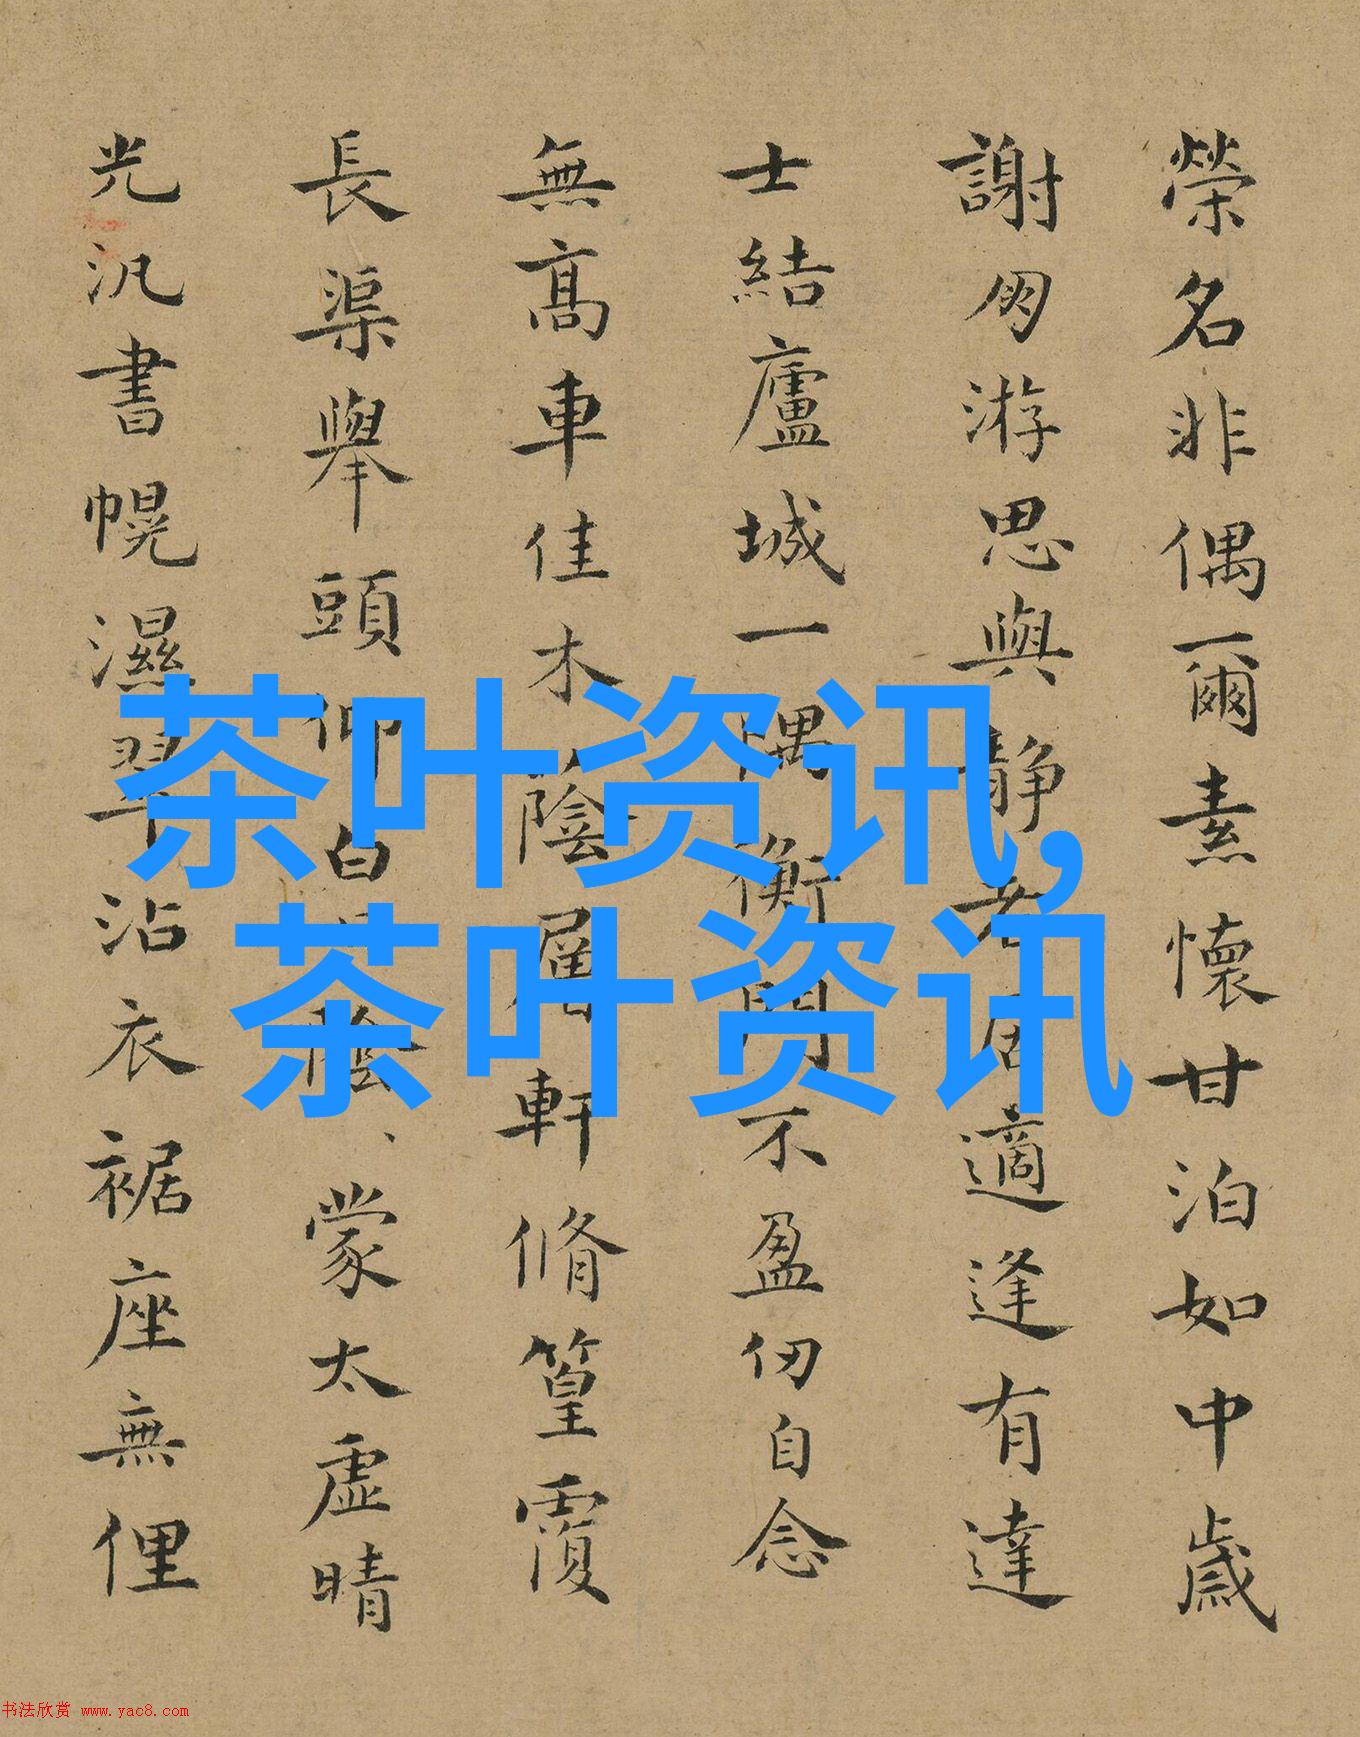 榮名非偶爾素懷甘泊如中歲
謝朋游思與靜者居適逢有達
士結廬城一隅衡門不盈仞自念
無高車佳木蔭層軒脩篁覆
長渠舉頭仰白陰蒙太虛晴
光汎書幌濕翠沾衣裾座無俚
茶叶资讯,
茶叶资讯
书法欣赏 www.yac8.com